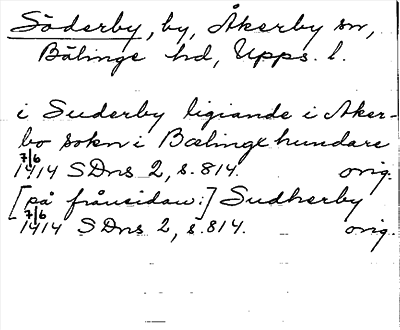 Söderby, by, Åkerby sn,
Bälinge hd, Upps. l.
i Suderby ligiande i Aker-
bo sokn i Bælingx hundare
7/6 1414 SDns 2, s. 814. orig.
[på frånsidan:] Sudherby
7/6 1414 SDns 2, s. 814. orig.